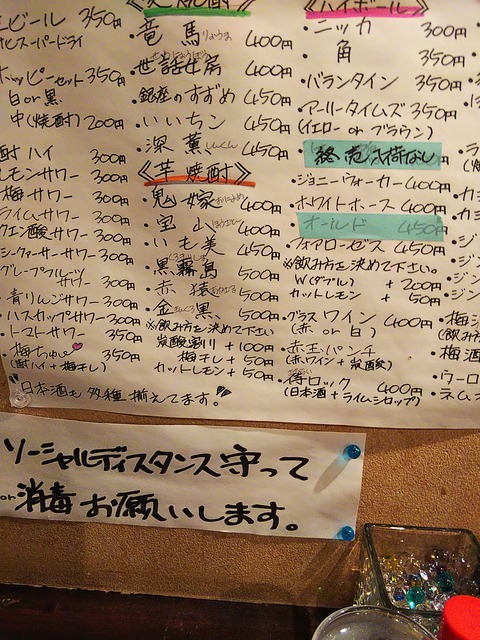 ビール 350円
スーパードライ
ホッピーセット 350円
白or黒
中(焼酎) 200円
酎ハイ 300円
レモンサワー 300円
梅サワー 300円
ライムサワー 300円
クエン酸サワー 300円
シークヮーサーサワー 300円
グレープフルーツ
サワー 300円
青りんごサワー 300円
ハスカップサワー 300円
トマトサワー 350円
梅ちゅ〜 350円
(酎ハイ+梅干し)
"日本酒も多種揃えてます。"
竜馬 りょうま 400円
世話女房 400円
・銀座のすずめ 450円
・いいちこ 450円
・深薫 しんくん 450円
《芋焼酎》
鬼嫁 おによめ 400円
・宝山 400円
・いも美 450円
・黒霧島 500円
・赤猿 500円
・金黒 500円
※飲み方を決めて下さい
炭酸割り +100円
梅干し +50円
カットレモン +50円
《ハイボール》
・ニッカ 300円
・角 350円
・バランタイン 350円
・アーリータイムズ 350円
(イエロー or ブラウン)
・ジョニーウォーカー 400円
・ホワイトホース 400円
オールド 450円
フォアローゼス 450円
※飲み方を決めて下さい。
W(ダブル) +200円
カットレモン +50円
・グラスワイン 400円
(赤 or 白)
・赤玉パンチ
(赤ワイン+炭酸)
・侍ロック 400円
(日本酒+ライムシロップ)
ソーシャルディスタンス守って
or消毒お願いします。